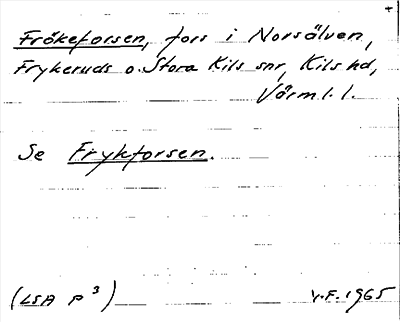 Frökeforsen, fors i Norsälven,
Frykeruds o. Stora Kils snr, Kils hd,
Värml. l.
Se Frykforsen.
(LSA P 3) V.F. 1965